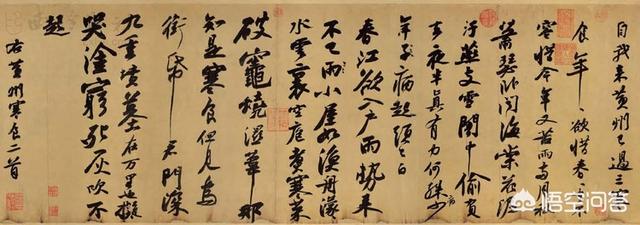 自我來黃州已過三寒
食年〻欲惜春春去不
容惜今年又苦雨兩月秋
蕭瑟卧聞海棠花泥
汙燕支雪闇中偷負
去夜半真有力何殊病少
年子病起頭已白
春江欲入户雨勢來
不已雨小屋如漁舟濛〻
水雲裏空庖煮寒菜
破竈燒濕葦那
知是寒食但見烏
銜帋君門深
九重墳墓在万里也擬
哭塗窮死灰吹不
起
右黃州寒食二首
悟空问答